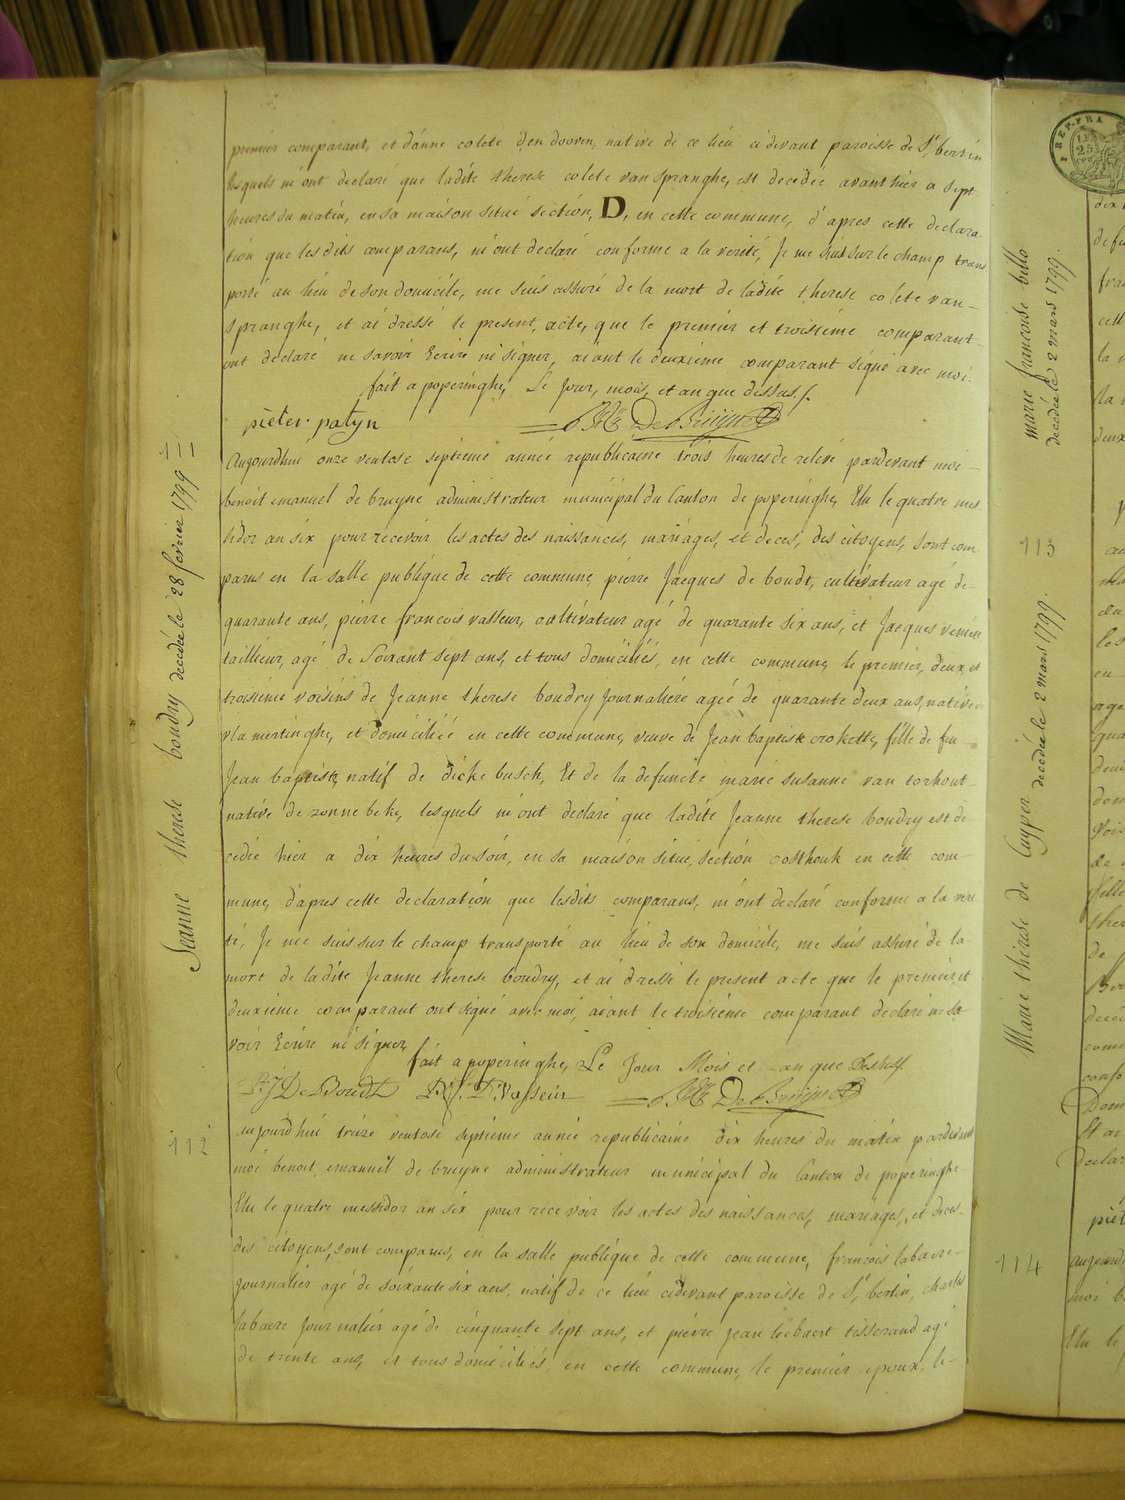 premier comparant, et d'anne colete den dooven, native de ce lieu cidevant paroisse de St bertin
lesquels m'ont declaré que ladite therese colete van spranghe, est decedée avant hier a sept
heures du matin, en sa maison situé section, D, en cette commune, d'apres cette declara-
tion que lesdits comparans, m'ont declaré conforme a la verité, Je me suis sur le champ trans
porté au lieu de son domicile, me suis assuré de la mort de ladite therese colete van-
spranghe, et ai dressé le present acte, que le premier et troisieme comparant-
ont declaré ne savoir Ecrire ni signer, aiant le deuxieme comparant signé avec moi.
fait a poperinghe, Le Jour, mois, et an que dessus./.
pieter patyn De Bruijne
111
Jeanne therese boudry decedée le 28 fevrier 1799
aujourdhui onze ventose septieme année republicaine trois heures de relevé pardevant moi-
benoit emanuel de bruyne administrateur municipal du Canton de poperinghe, Elu le quatre mes-
sidor an six pour recevoir les actes des naissances, mariages, et deces, des citoyens, sont com-
parus en la salle publique de cette commune, pierre Jacques de boudt, cultivateur agé de-
quarante ans, pierre francois vasseur, cultivateur agé de quarante six ans, et Jacques
tailleur, agé de Soixant sept ans, et tous domiciliés, en cette commune, le premier, deux, et
troisieme voisins de Jeanne therese boudry Journaliere agée de quarante deux ans, native
vlamertinghe, et domiciliée en cette commune, veuve de Jean baptiste crokette, fille de feu-
Jean baptiste, natif de dickebusch, Et de la defuncte marie susanne van torhout-
native de zonnebeke, lesquels m'ont declaré que ladite Jeanne therese boudry est de
cedée hier a dix heures du soir, en sa maison situe, section oosthouk en cette com-
mune, d'apres cette declaration que lesdits comparans, m'ont declaré conforme a la veri
té, Je me suis sur le champ transporté au lieu de son domicile, me suis assuré de la
mort de ladite Jeanne therese boudry, et ai dressé le present acte que le premier, et
deuxieme comparant ont signé avec moi, aiant le troisieme comparant declaré ne sa
voir Ecrire ni signer,
fait a poperinghe, Le Jour Mois et an que Dessus.
P: J De Boudt P: F: Vasseur De Bruijne
112
aujourdhui treize ventose septieme année republicaine dix heures du matin pardevant
moi benoit, emanuel de bruyne administrateur municipal du Canton de poperinghe
Elu le quatre messidor an six pour recevoir les actes des naissances, mariages, et deces-
des citoyens, sont comparus, en la salle publique de cette commune, francois labaere-
Journalier agé de soixante six ans, natif de ce lieu cidevant paroisse de St bertin, charles
labaere Journalier agé de cinquante sept ans, et pierre jean liebaert tisserand agé
de trente ans, et tous domiciliés, en cette commune, le premier epoux, le-
marie francoise billo
decedée le 2 mars 1799.
113
Marie therese de Cuyper decedée le 2 mars 1799.
114
REP. FRA